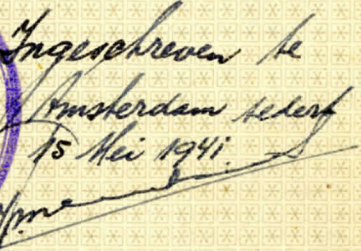 Ingeschreven te
Amsterdam sedert
15 Mei 1941.